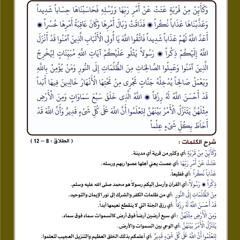 وَكَأَيِّن مِّن قَرْيَةٍ عَتَتْ عَنْ أَمْرِ رَبِّهَا وَرُسُلِهِ فَحَاسَبْنَاهَا حِسَابًا شَدِيدًا
وَعَذَّبْنَاهَا عَذَابًا نُّكْرًا ۞ فَذَاقَتْ وَبَالَ أَمْرِهَا وَكَانَ عَاقِبَةُ أَمْرِهَا خُسْرًا ۞
أَعَدَّ اللَّهُ لَهُمْ عَذَابًا شَدِيدًا فَاتَّقُوا اللَّهَ يَا أُولِي الْأَلْبَابِ الَّذِينَ آمَنُوا قَدْ أَنزَلَ
اللَّهُ إِلَيْكُمْ ذِكْرًا ۞ رَسُولًا يَتْلُو عَلَيْكُمْ آيَاتِ اللَّهِ مُبَيِّنَاتٍ لِيُخْرِجَ
الَّذِينَ آمَنُوا وَعَمِلُوا الصَّالِحَاتِ مِنَ الظُّلُمَاتِ إِلَى النُّورِ وَمَن يُؤْمِن بِاللَّهِ
وَيَعْمَلْ صَالِحًا يُدْخِلْهُ جَنَّاتٍ تَجْرِي مِن تَحْتِهَا الْأَنْهَارُ خَالِدِينَ فِيهَا أَبَدًا
قَدْ أَحْسَنَ اللَّهُ لَهُ رِزْقًا ۞ اللَّهُ الَّذِي خَلَقَ سَبْعَ سَمَاوَاتٍ وَمِنَ الْأَرْضِ
مِثْلَهُنَّ يَتَنَزَّلُ الْأَمْرُ بَيْنَهُنَّ لِتَعْلَمُوا أَنَّ اللَّهَ عَلَى كُلِّ شَيْءٍ قَدِيرٌ وَأَنَّ اللَّهَ
قَدْ أَحَاطَ بِكُلِّ شَيْءٍ عِلْمًا
شرح الكلمات : ( الطلاق : 8 – 12 )
وَكَأَيِّن مِّن قَرْيَةٍ: أي وكثير من قرية أي مدينة.
عَتَتْ عَنْ أَمْرِ رَبِّهَا: أي عصت يعني أهلها عصوا ربهم ورسله.
عَذَابًا نُّكْرًا: أي فظيعاً.
ذِكْرًا رَسُولًا: أي القرآن وأرسل إليكم رسولاً هو محمد صلى الله عليه وسلم.
مِنَ الظُّلُمَاتِ إِلَى النُّورِ: أي من ظلمات الكفر والشرك إلى نور الإيمان والتوحيد.
قَدْ أَحْسَنَ اللَّهُ لَهُ رِزْقًا: أي رزق الجنة التي لا ينقطع نعيمها أبداً.
وَمِنَ الْأَرْضِ مِثْلَهُنَّ: أي سبع أرضين أرضاً فوق أرض كالسموات سماء فوق سماء.
يَتَنَزَّلُ الْأَمْرُ بَيْنَهُنَّ: أي الوحي بين السموات والأرض.
لِتَعْلَمُوا: أي أعلمكم بذلك الخلق العظيم والتنزيل العجيب لتعلموا